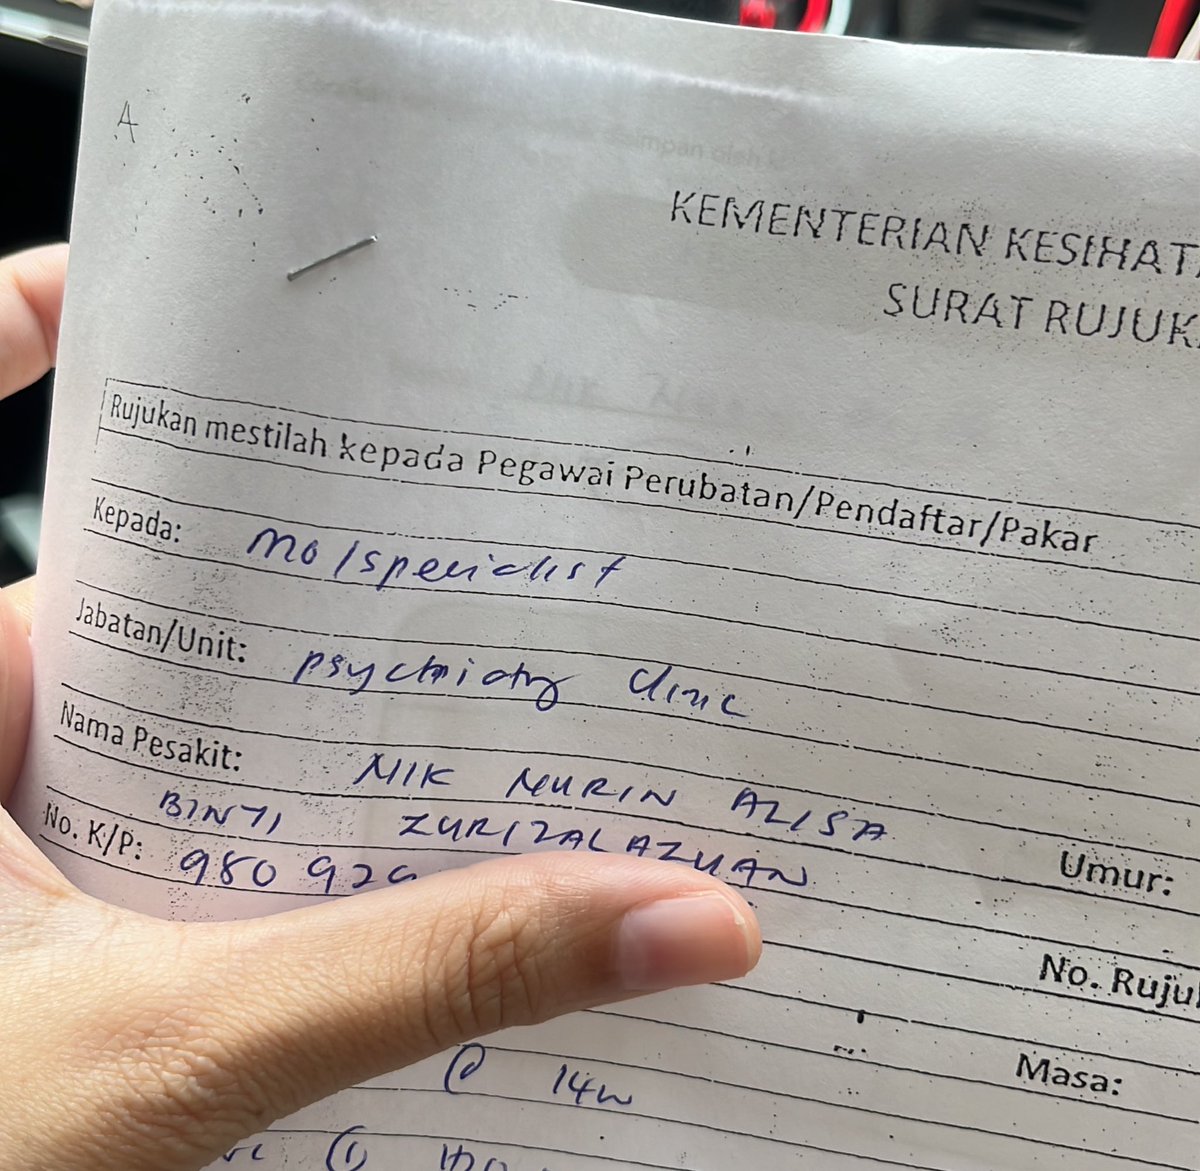 A
KEMENTERIAN KESIHAT
SURAT RUJUK
Rujukan mestilah kepada Pegawai Perubatan/Pendaftar/Pakar
Kepada: MO/specialist
Jabatan/Unit: psychiatry clinic
Nama Pesakit: NIK NURIN ALISA
BINTI ZURIZAL AZUAN
Umur:
No. K/P: 980929
No. Ruju
Masa:
@ 14w